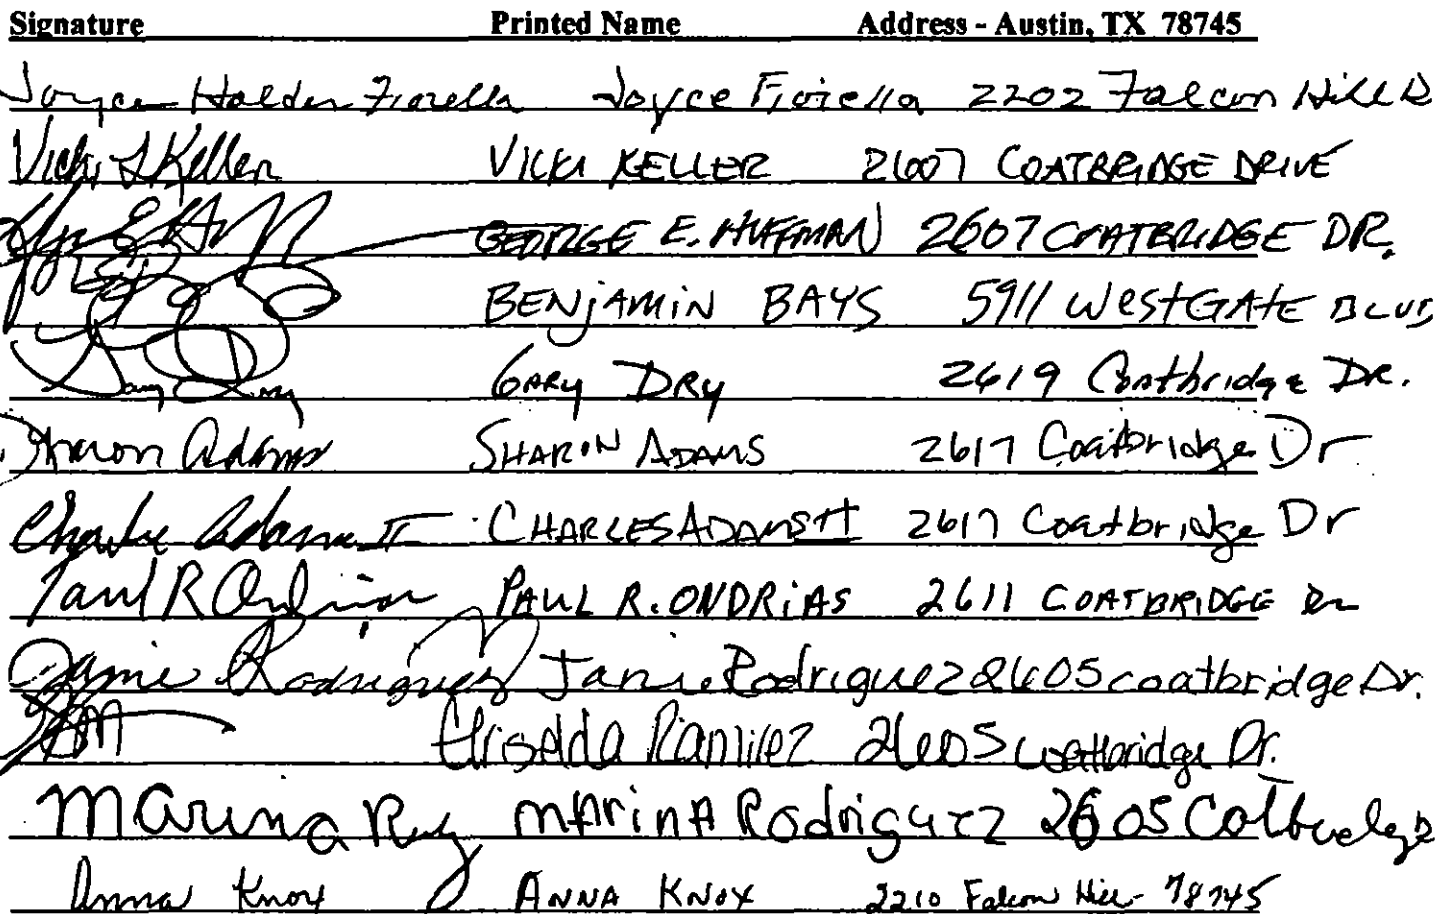 Signature Printed Name Address - Austin, TX 78745
Joyce Holder Fiorella Joyce Fiorella 2202 Falcon Hill D
Vicki L Keller VICKI KELLER 2607 COATBRIDGE DRIVE
GEORGE E. HUFFMAN 2607 COATBRIDGE DR.
BENjAMiN BAYS 5911 WestGAtE BLVD
Gary Dry GARy DRy 2619 Coatbridge DR.
Sharon Adams SHARON ADAMS 2617 Coatbridge Dr
Charles Adams II CHARLES ADAMS II 2617 Coatbridge Dr
Paul R Ondrias PAUL R. ONDRiAS 2611 COATBRIDGE Dr
Janie Rodriguez Janie Rodriguez 2605 coatbridge Dr.
Griselda Ramirez 2605 Coatbridge Dr.
Marina MArinA Rodriguez 2605
Anna Knox ANNA KNOX 2210 Falcon Hill - 78745